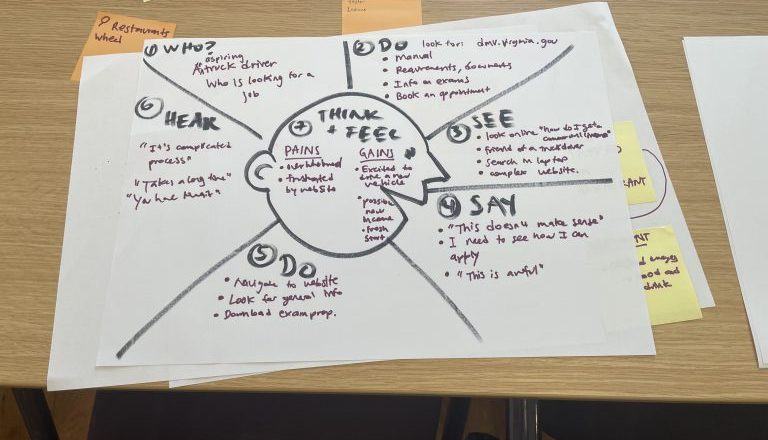 Restaurants
wheel
① WHO?
aspiring
truck driver
Who is looking for a
job
② DO
look for: dmv.virginia.gov
• Manual
• Requirements, documents
• Info on exams
• Book an appointment
③ SEE
• look online "how do I get a
• friend of a
• search in laptop
• complex website.
④ SAY
• "This doesn't make sense"
• I need to see how I can
apply
• "This is awful"
⑤ DO
• Navigate to website
• Look for general info
• Download exam prep.
⑥ HEAR
"It's complicated
process"
"Takes a long time"
"You have
⑦ THINK
+ FEEL
PAINS
• overwhelmed
• frustrated
by website
GAINS
• Excited to
drive a new
vehicle
• possible
new
income
• fresh
start
drink